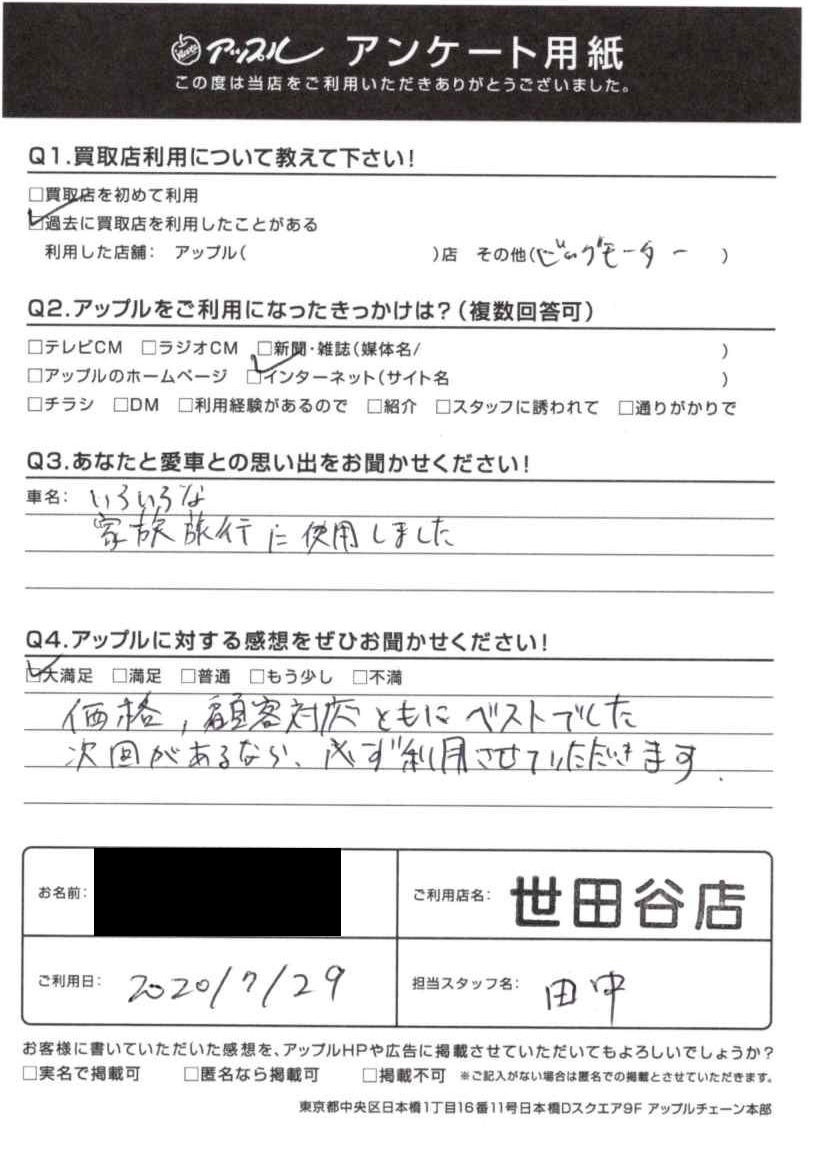 アップル アンケート用紙
この度は当店をご利用いただきありがとうございました。
Q1.買取店利用について教えて下さい!
□買取店を初めて利用
☑過去に買取店を利用したことがある
利用した店舗: アップル( )店 その他(ビッグモーター )
Q2.アップルをご利用になったきっかけは?(複数回答可)
□テレビCM □ラジオCM □新聞・雑誌(媒体名/ )
□アップルのホームページ ☑インターネット(サイト名 )
□チラシ □DM □利用経験があるので □紹介 □スタッフに誘われて □通りがかりで
Q3.あなたと愛車との思い出をお聞かせください!
車名: いろいろな
家族旅行に使用しました
Q4.アップルに対する感想をぜひお聞かせください!
☑大満足 □満足 □普通 □もう少し □不満
価格,顧客対応ともにベストでした
次回があるなら、必ず利用させていただきます.
お名前:
ご利用店名: 世田谷店
ご利用日: 2020/7/29
担当スタッフ名: 田中
お客様に書いていただいた感想を、アップルHPや広告に掲載させていただいてもよろしいでしょうか?
□実名で掲載可 □匿名なら掲載可 □掲載不可 ※ご記入がない場合は匿名での掲載とさせていただきます。
東京都中央区日本橋1丁目16番11号日本橋Dスクエア9F アップルチェーン本部